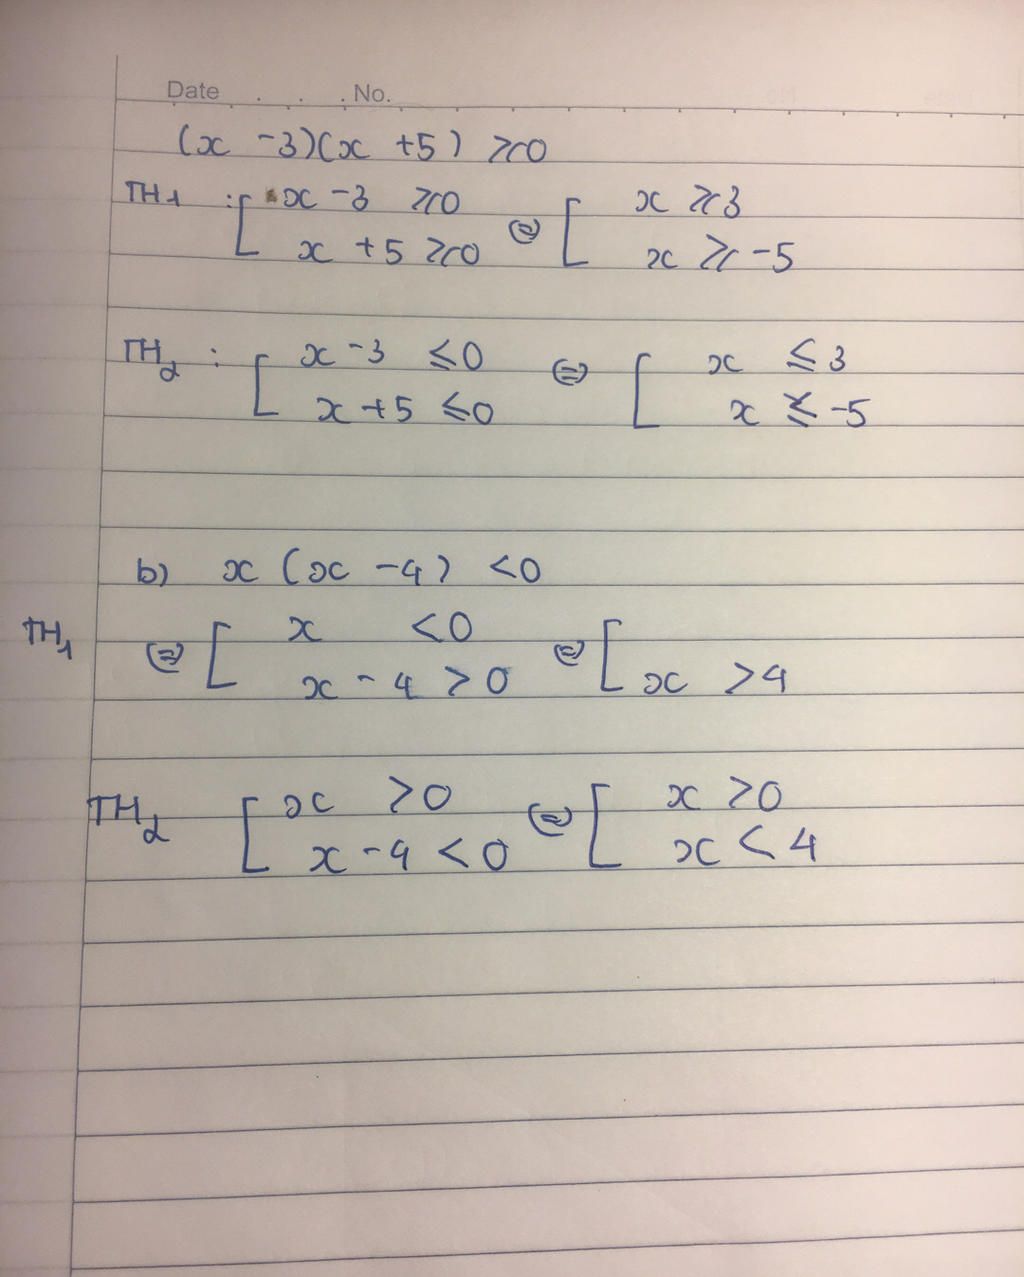 Date . . . . No.
(x -3)(x +5) ≥0
TH1 : [ x -3 ≥0 ⇔ [ x ≥3
x +5 ≥0 x ≥ -5
TH2 : [ x -3 ≤0 ⇔ [ x ≤ 3
x +5 ≤0 x ≤ -5
b) x (x -4) <0
TH1 ⇔ [ x <0 ⇔ [
x - 4 >0 x >4
TH2 [ x >0 ⇔ [ x >0
x -4 <0 x < 4